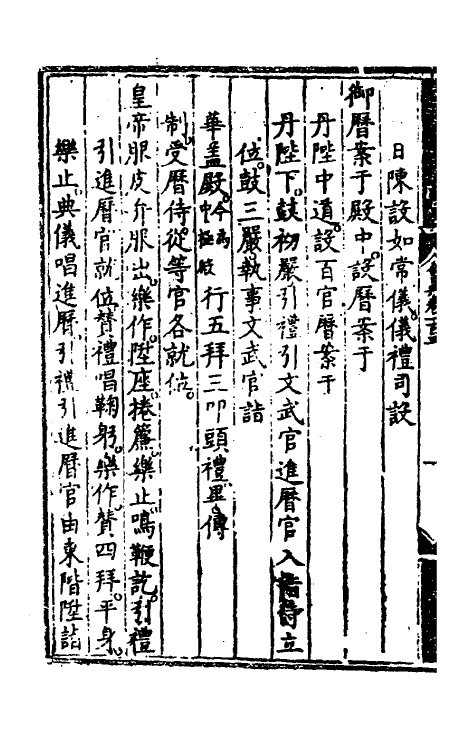 日陳設如常儀。儀禮司設
御曆案于殿中。設曆案于
丹陛中道。設百官曆案于
丹陛下。鼓初嚴。引禮引文武官進曆官入侍立
位。鼓三嚴。執事文武官詣
華蓋殿。今為中極殿行五拜三叩頭禮。畢。傳
制。受曆侍從等官各就位。
皇帝服皮弁服出。樂作。陞座。捲簾。樂止。鳴鞭訖。引禮
引進曆官就位。贊禮唱鞠躬。樂作。贊四拜。平身。
樂止。典儀唱進曆。引禮引進曆官由東階陞詣